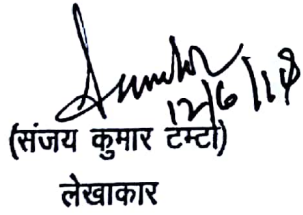 12/6/18
(संजय कुमार टम्टा)
लेखाकार